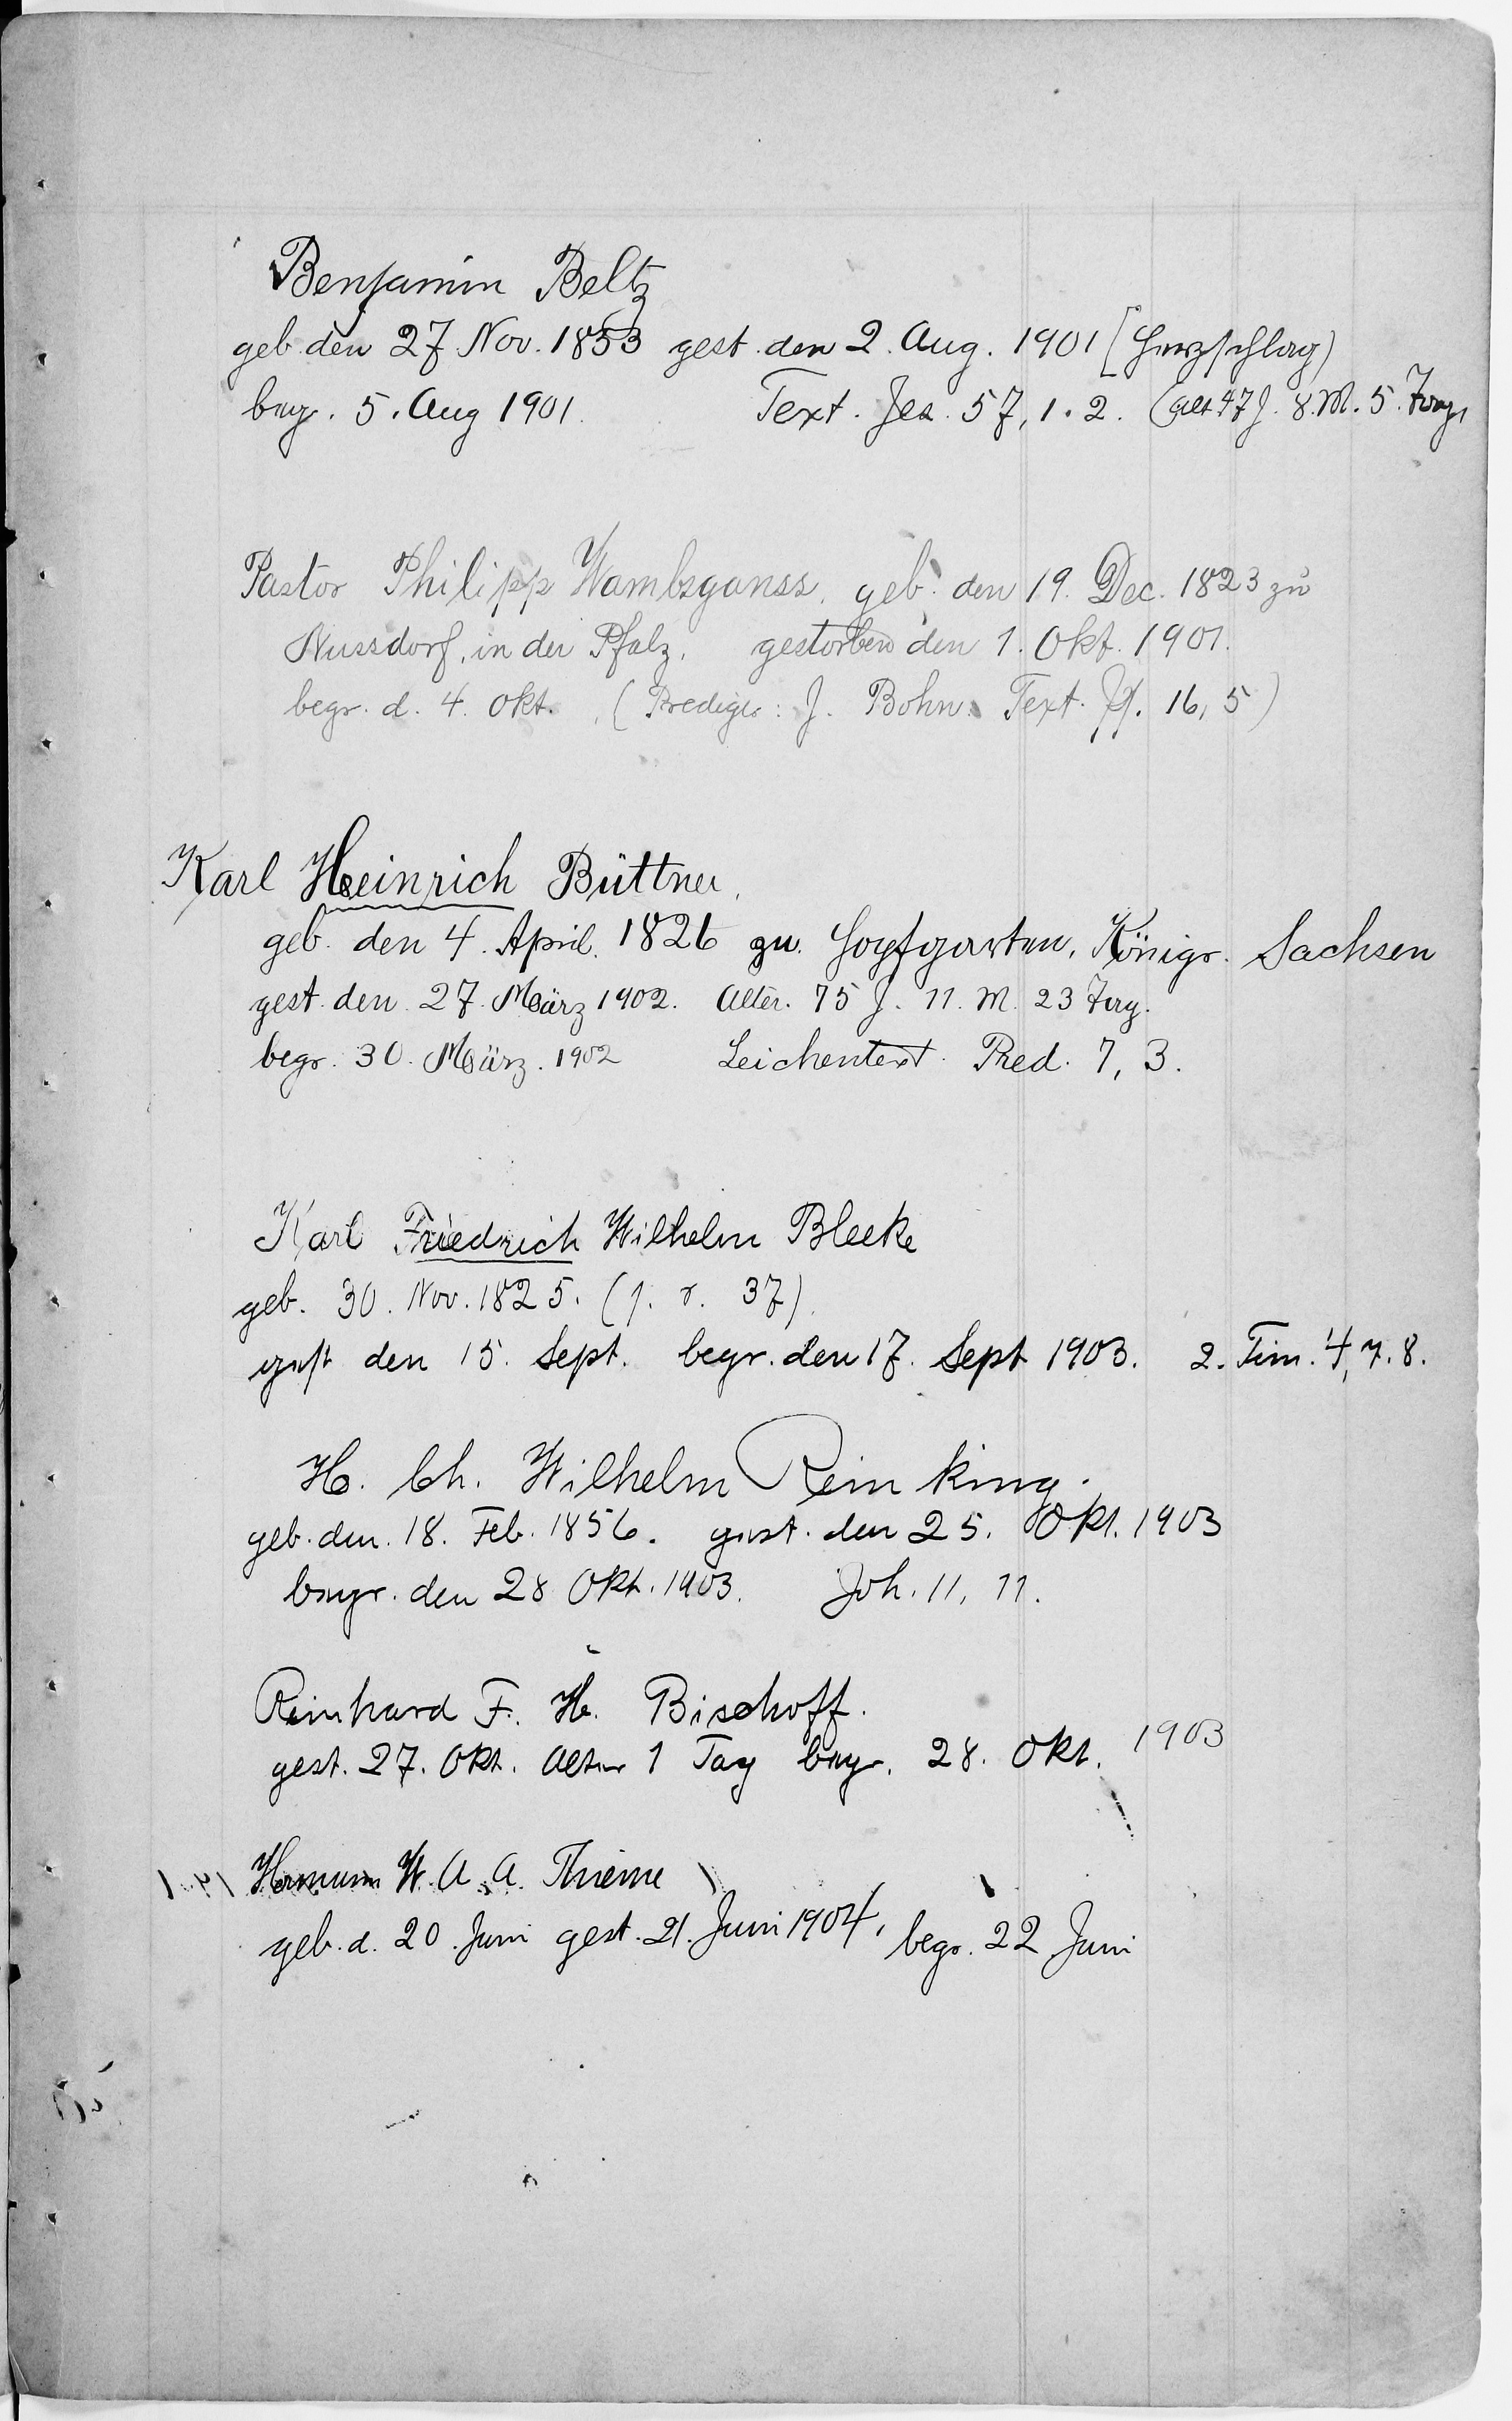 Benjamin Beltz
geb. den 27. Nov. 1853 gest. den 2. Aug. 1901 [Herzschlag)
begr. 5. Aug 1901. Text. Jes. 57, 1. 2. (alt 47 J. 8. M. 5. Tag.
Pastor Philipp Wambsganss, geb. den 19. Dec. 1823 zu
Nussdorf, in der Pfalz, gestorben den 1. Okt. 1901.
begr. d. 4. Okt. (Prediger: J. Bohn. Text. Ps. 16, 5)
Karl Heinrich Büttner,
geb. den 4. April. 1826 zu Hopfgarten, Königr. Sachsen
gest. den 27. März 1902. Alter. 75 J. 11. M. 23 Tag.
begr. 30. März. 1902 Leichentext. Pred. 7, 3.
Karl Friedrich Wilhelm Bleeke
geb. 30. Nov. 1825. 37).
gest den 15. Sept. begr. den 17. Sept 1903. 2. Tim. 4, 7. 8.
H. Ch. Wilhelm Reinking.
geb. den. 18. Feb. 1856. gest. den 25. Okt. 1903
begr. den 28 Okt. 1903. Joh. 11, 11.
Reinhard F. H. Bischoff.
gest. 27. Okt. Alter 1 Tag begr. 28. Okt. 1903
Hermann W. A. A. Thieme
geb. d. 20. Juni gest. 21. Juni 1904, begr. 22 Juni